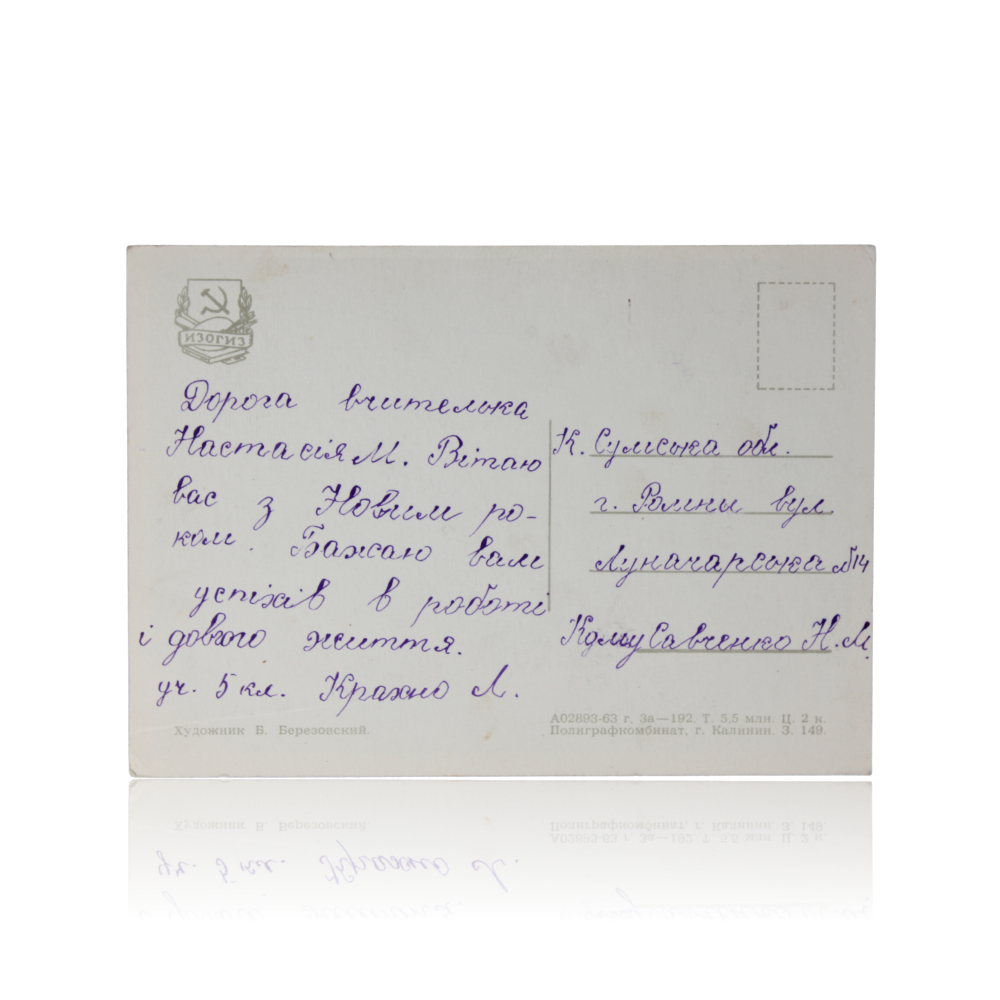 ИЗОГИЗ
Дорога вчителька
Настасія М. Вітаю
вас з Новим ро-
ком. Бажаю вам
успіхів в роботі
і довгого життя.
уч. 5 кл. Крахно Л.
К. Сумська обл.
г. Ромни вул
Луначарська №14
Кому Савченко Н. М
Художник Б. Березовский.
А02893-63 г. За—192. Т. 5,5 млн. Ц. 2 к.
Полиграфкомбинат, г. Калинин. З. 149.